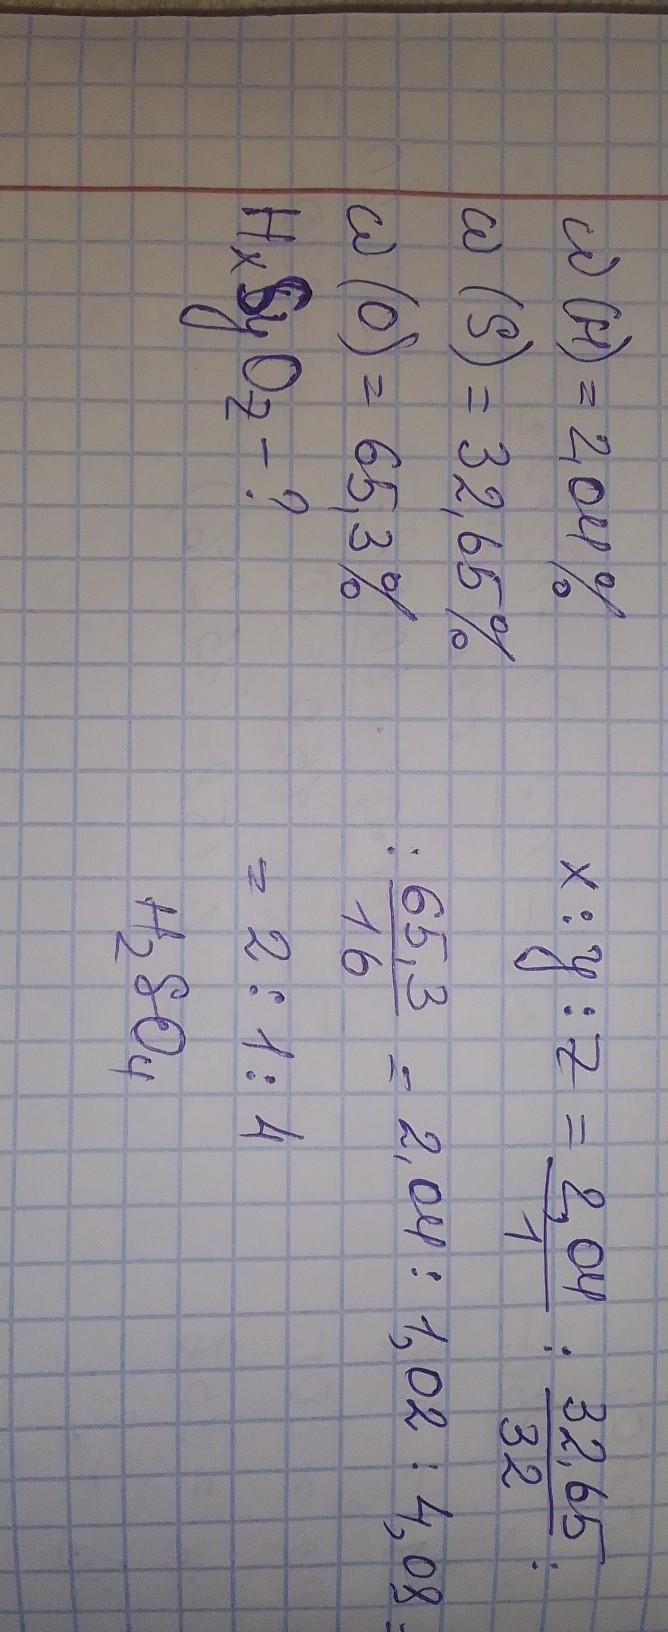 ω(H) = 2,04%
ω(S) = 32,65%
ω(O) = 65,3%
HxSyOz - ?
x : y : z = 2,04/1 : 32,65/32 :
: 65,3/16 = 2,04 : 1,02 : 4,08 =
= 2 : 1 : 4
H₂SO₄